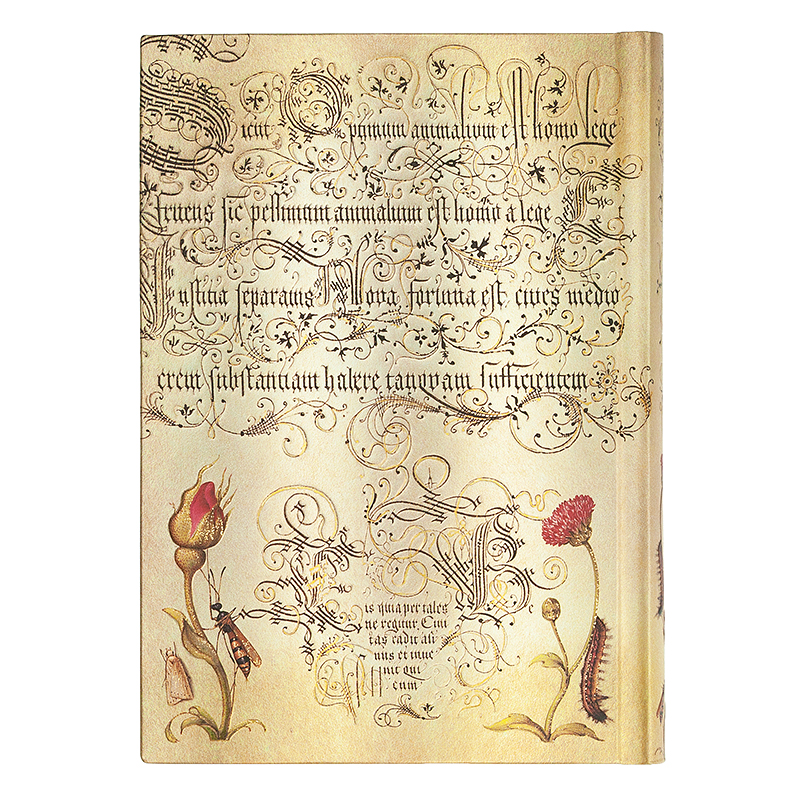 Sicut Optimum animalium est homo lege
fruens sic pessimum animalium est homo a lege
Iustitia separatus Nova fortuna est, cives medio
crem substantiam habere tanquam sufficientem
is quia per tales
ne regitur, Civi
tas cadit ali
nus et inve
nit qui
cum